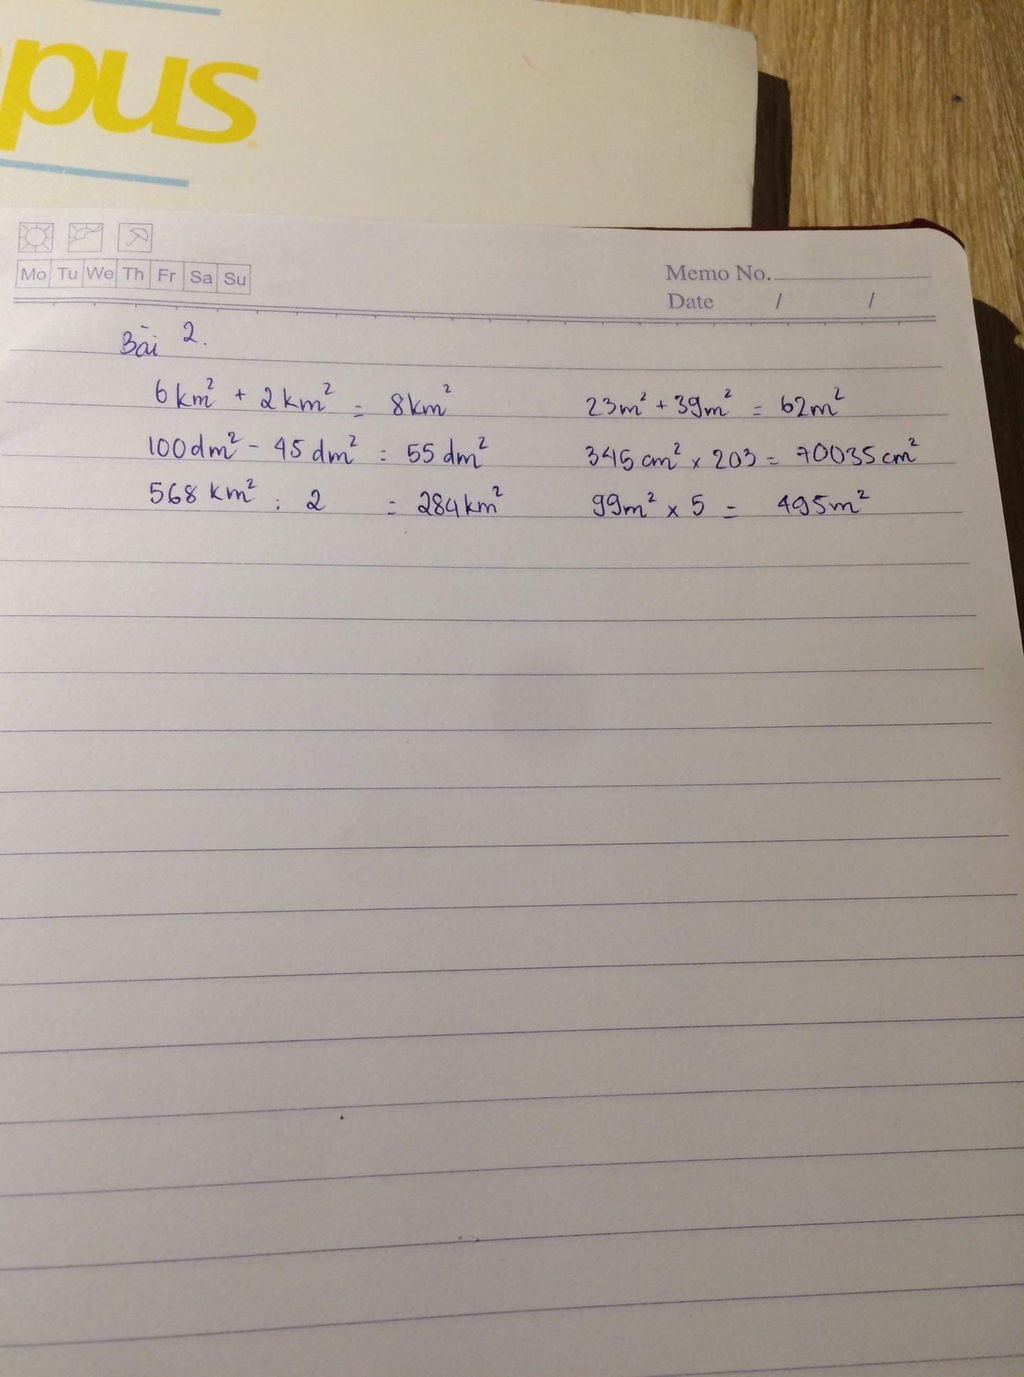 pus
Mo Tu We Th Fr Sa Su
Memo No.
Date / /
Bài 2.
6km² + 2km² = 8km² 23m² + 39m² = 62m²
100dm² - 45dm² = 55dm² 345cm² x 203 = 70035cm²
568km² : 2 = 284km² 99m² x 5 = 495m²